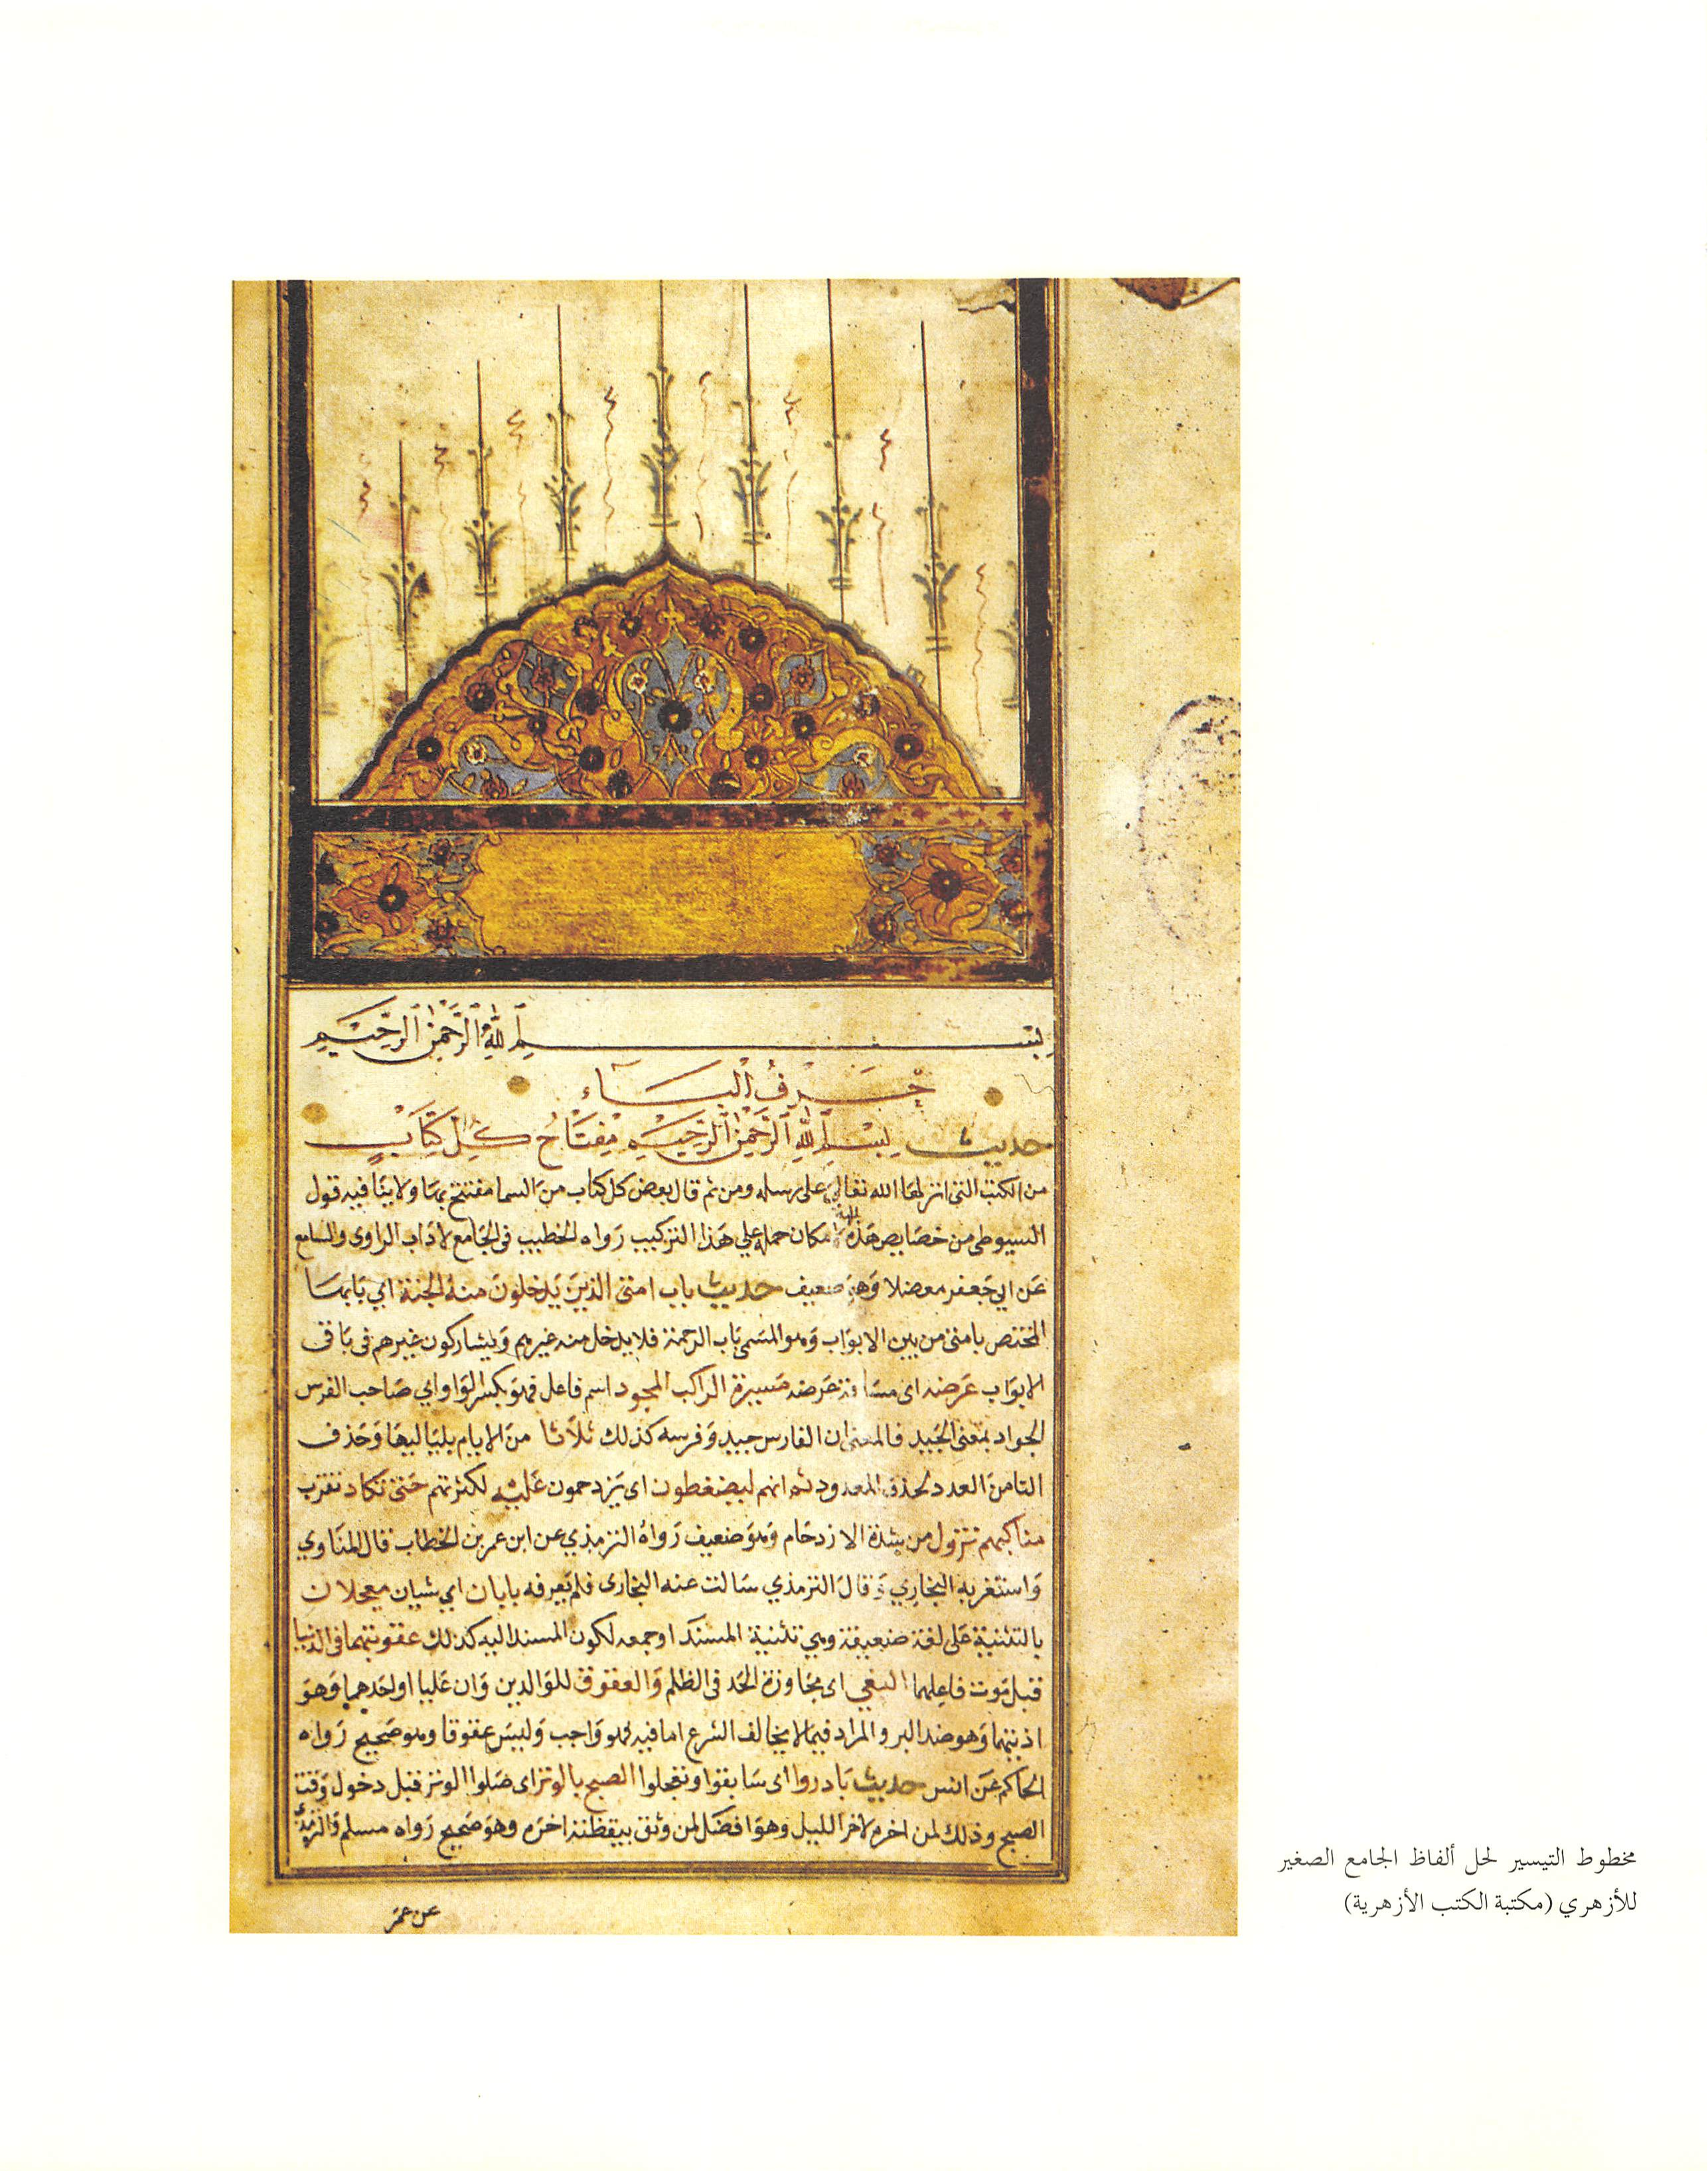 بِسْمِ اللَّهِ الرَّحْمَٰنِ الرَّحِيمِ
حَرْفُ الْبَاء
حديث بِسْمِ اللَّهِ الرَّحْمَٰنِ الرَّحِيمِ مِفْتَاحُ كُلِّ كِتَابٍ
من الكتب التى انزلها الله تعالى على رسله ومن ثم قال بعض كل كتاب من السما مفتتح بها ولا ينافيه قول
السيوطى من خصايص هذه الامة لامكان حمله على هذا التركيب رواه الخطيب فى الجامع لاداب الراوى والسامع
عن ابي جعفر معضلا وهو ضعيف حديث باب امتى الذين يدخلون منه الجنة اي بابها
المختص بامتى من بين الابواب وهو المسمى باب الرحمة فلا يدخل منه غيرهم ويشاركون غيرهم فى باقى
الابواب عرضه اى مسافة عرضه مسيرة الراكب المجود اسم فاعل فهو بكسر الواو اي صاحب الفرس
الجواد بمعنى الجيد فالمعنى ان الفارس جيد وفرسه كذلك ثلاثا من الايام بلياليها وحذف
التا من العدد لحذف المعدود ثم انهم ليضغطون اى يزدحمون عليه لكثرتهم حتى تكاد تقترب
مناكبهم تزول من شدة الازدحام وهو ضعيف رواه الترمذي عن ابن عمر بن الخطاب قال المناوي
واستغربه البخاري وقال الترمذي سالت عنه البخارى فلم يعرفه بابان اي شيان معجلان
بالتثنية على لغة ضعيفة وهي تثنية المسند او جمعه لكون المسند اليه كذلك عقوبتهما فى الدنيا
قبل موت فاعلهما البغي اى مجاوزة الحد فى الظلم والعقوق للوالدين وان عليا او لحدهما وهو
اذيتهما وهو ضد البر والمراد فيما لا يخالف الشرع اما فيه فهو واجب وليس عقوقا وهو صحيح رواه
الحاكم عن انس حديث بادروا اى سابقوا وتعجلوا الصبح بالوتر اى صلوا الوتر قبل دخول وقت
الصبح وذلك لمن اخره لاخر الليل وهو افضل لمن وثق بيقظته اخره وهو صحيح رواه مسلم والترمذي
عن عمر
مخطوط التيسير لحل ألفاظ الجامع الصغير
للأزهري (مكتبة الكتب الأزهرية)